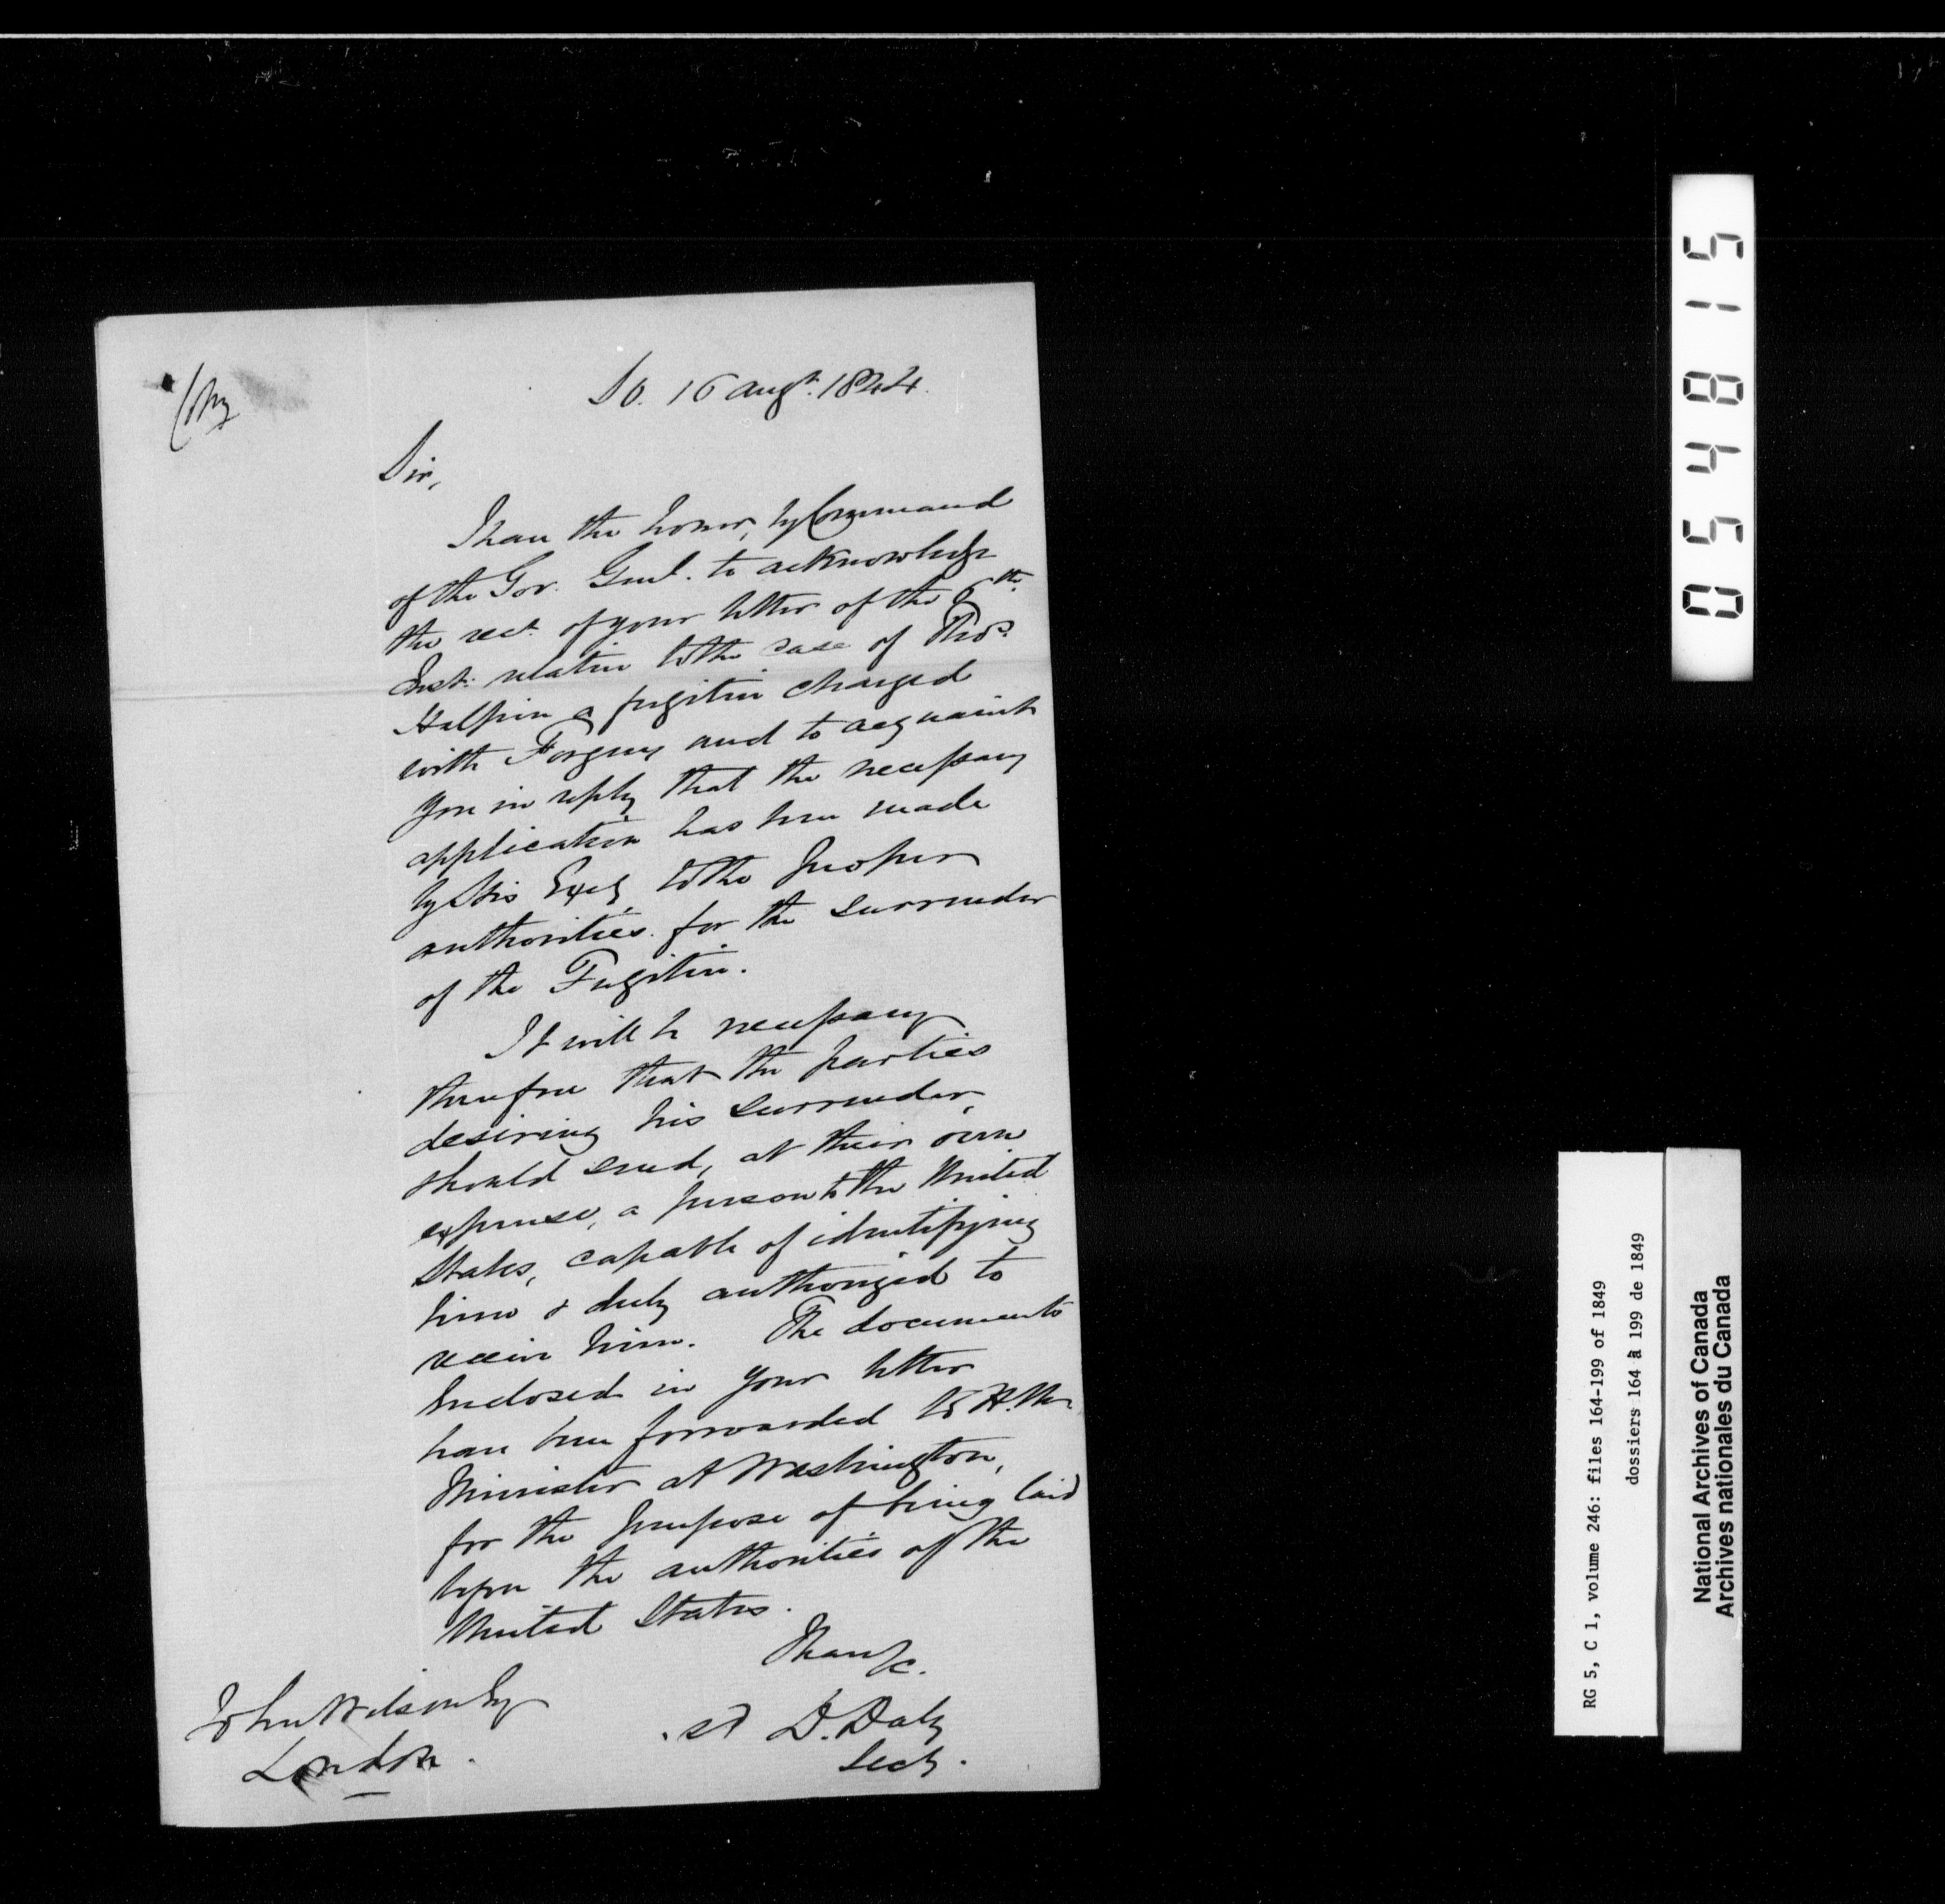 Copy
S.O. 16 Augt. 1844.
Sir,
I have the honor, by Command
of the Gov. Genl. to acknowledge
the rect. of your letter of the 6th.
Inst. relative to the case of Thos.
Halpin a fugitive charged
with Forgery and to acquaint
you in reply that the necessary
application has been made
by His Excy. to the proper
authorities for the surrender
of the Fugitive.
It will be necessary
therefore that the parties
desiring his surrender,
should send, at their own
expense, a person to the United
States, capable of identifying
him & duly authorized to
receive him. The documents
enclosed in your letter
have been forwarded to H.M.
Minister at Washington,
for the purpose of being laid
before the authorities of the
United States.
I have &c.
sd D. Daly
Secy.
John Wilson Esq
London.
054815
RG 5, C 1, volume 246: files 164-199 of 1849
dossiers 164 à 199 de 1849
National Archives of Canada
Archives nationales du Canada